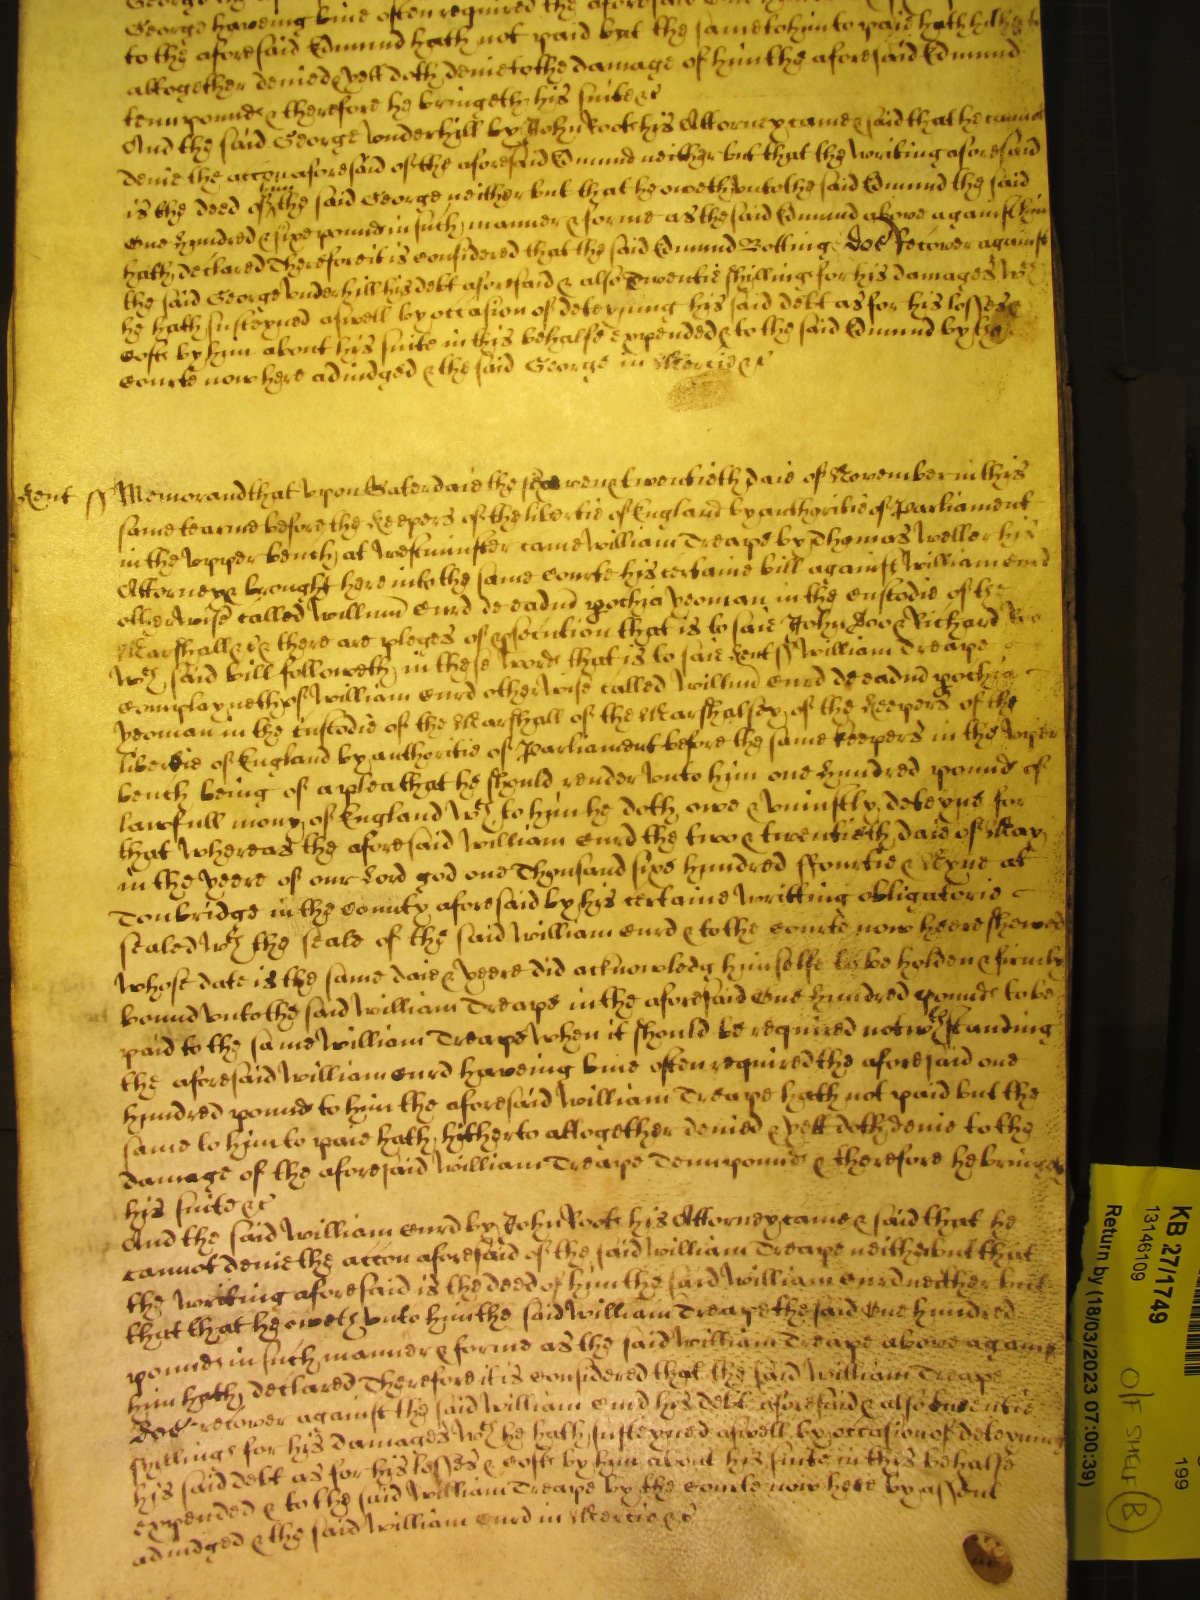 George haveing bine often required the aforesaid One
to the aforesaid Edmund hath not paid but the same to him to paie hath hitherto
altogether denied & yett doth denie to the damage of him the aforesaid Edmund
tenn pounds & therefore he bringeth his suite &c
And the said George Underhill by John Roote his Attorney came & said that he cannot
denie the accon aforesaid of the aforesaid Edmund neither but that the writing aforesaid
is the deed of him the said George neither but that he oweth unto the said Edmund the said
One hundred & sixe pounds in such manner & forme as the said Edmund above against him
hath declared Therefore it is considered that the said Edmund Botting doe recover against
the said George Underhill his debt aforesaid & also Twentie shillings for his damages wch
he hath susteyned aswell by occasion of deteyning his said debt as for his losses &
costs by him about his suite in this behalfe expended & to the said Edmund by the
courte now here adiudged & the said George in Mercie &c
Kent ss Memorand that upon Saterdaie the & twentieth daie of November in this
same tearme before the Keepers of the libertie of England by authoritie of Parliament
in the upper bench at Westminster came William Treape by Thomas Weller his
Attorney & brought here into the same courte his certaine bill against William Curd
otherwise called Willum Curd de eadm pochia yeoman in the custodie of the
Marshall &c & there are pleges of psecution that is to saie John Doo & Richard Roo
wch said bill followeth in these words that is to saie Kent ss William Treape
complayneth of William Curd otherwise called Willm Curd de eadm pochia
yeoman in the custodie of the Marshall of the Marshalsey of the Keepers of the
libertie of England by authoritie of Parliament before the same keepers in the upper
bench being of a plea that he should render unto him one hundred pounds of
lawfull mony of England wch to him he doth owe & uniustly deteyne for
that whereas the aforesaid William Curd the two & twentieth daie of May
in the yeere of our Lord god one Thousand sixe hundred ffourtie & Nyne at
Tonbridge in the county aforesaid by his certaine writting obligatorie
sealed wth the seale of the said William Curd & to the courte now heere shewed
whose date is the same daie & yeere did acknowledg himselfe to be holden & firmly
bound unto the said William Treape in the aforesaid One hundred pounds to be
paid to the same William Treape when it should be required notwthstanding
the aforesaid William Curd haveing bine often required the aforesaid one
hundred pounds to him the aforesaid William Treape hath not paid but the
same to him to paie hath hitherto altogether denied & yett doth denie to the
damage of the aforesaid William Treape Tenn pounds & therefore he bringeth
his suite &c
And the said William Curd by John Roote his Attorney came & said that he
cannot denie the accon aforesaid of the said William Treape neither but that
the writing aforesaid is the deed of him the said William Curd neither but
that that he oweth unto him the said William Treape the said One hundred
pounds in such manner & forme as the said William Treape above against
him hath declared Therefore it is considered that the said William Treape
doe recover against the said William Curd his debt aforesaid & also twentie
shillings for his damages wch he hath susteyned aswell by occasion of deteyning
his said debt as for his losses & costs by him about his suite in this behalfe
expended & to the said William Treape by the courte now here by assent
adiudged & the said William Curd in Mercie &c
KB 27/1749
13146109
Return by (18/03/2023 07:00:39)
199
O/F SHELF B